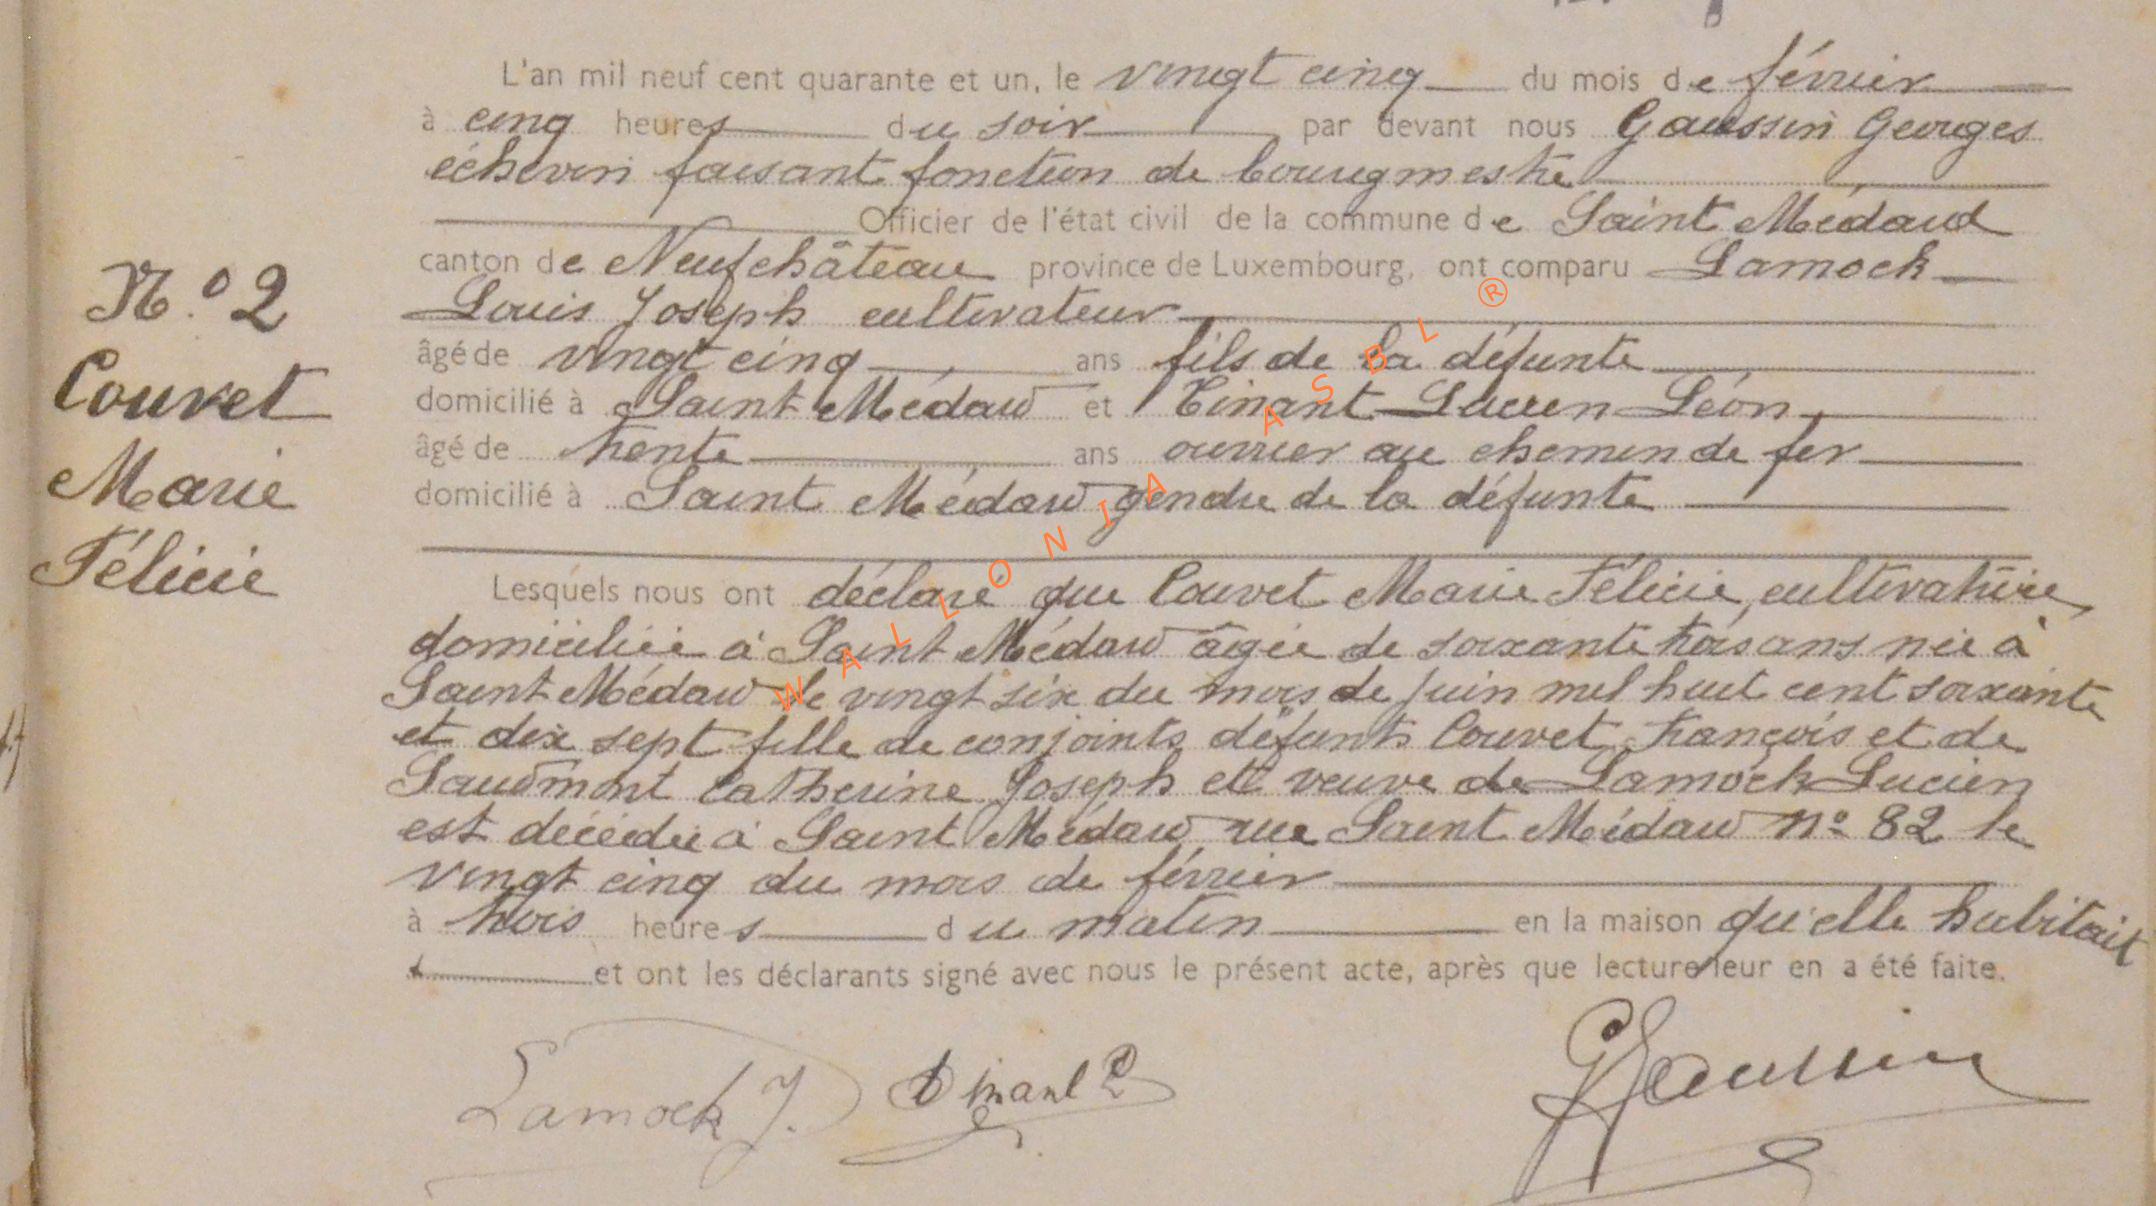 L'an mil neuf cent quarante et un, le vingt cinq du mois de février
à cinq heures du soir par devant nous Gaussin Georges
échevin faisant fonction de bourgmestre
Officier de l'état civil de la commune de Saint Médard
canton de Neufchâteau province de Luxembourg, ont comparu Lamock
Louis Joseph cultivateur
âgé de vingt cinq ans fils de la défunte
domicilié à Saint Médard et Tinant Lucien Léon
âgé de trente ans ouvrier au chemin de fer
domicilié à Saint Médard gendre de la défunte
N.º 2
Couvet
Marie
Félicie
Lesquels nous ont déclaré que Couvet Marie Félicie, cultivatrice,
domiciliée à Saint Médard âgée de soixante trois ans née à
Saint Médard le vingt six du mois de juin mil huit cent soixante
et dix sept fille de conjoints défunts Couvet François et de
Catherine Joseph et veuve de Lamock Lucien
est décédée à Saint Médard rue Saint Médard nº 82 le
vingt cinq du mois de février
à trois heures du matin en la maison qu'elle habitait
et ont les déclarants signé avec nous le présent acte, après que lecture leur en a été faite.
Lamock J. Tinant L
G Gaussin
WALLONIA ASBL ®